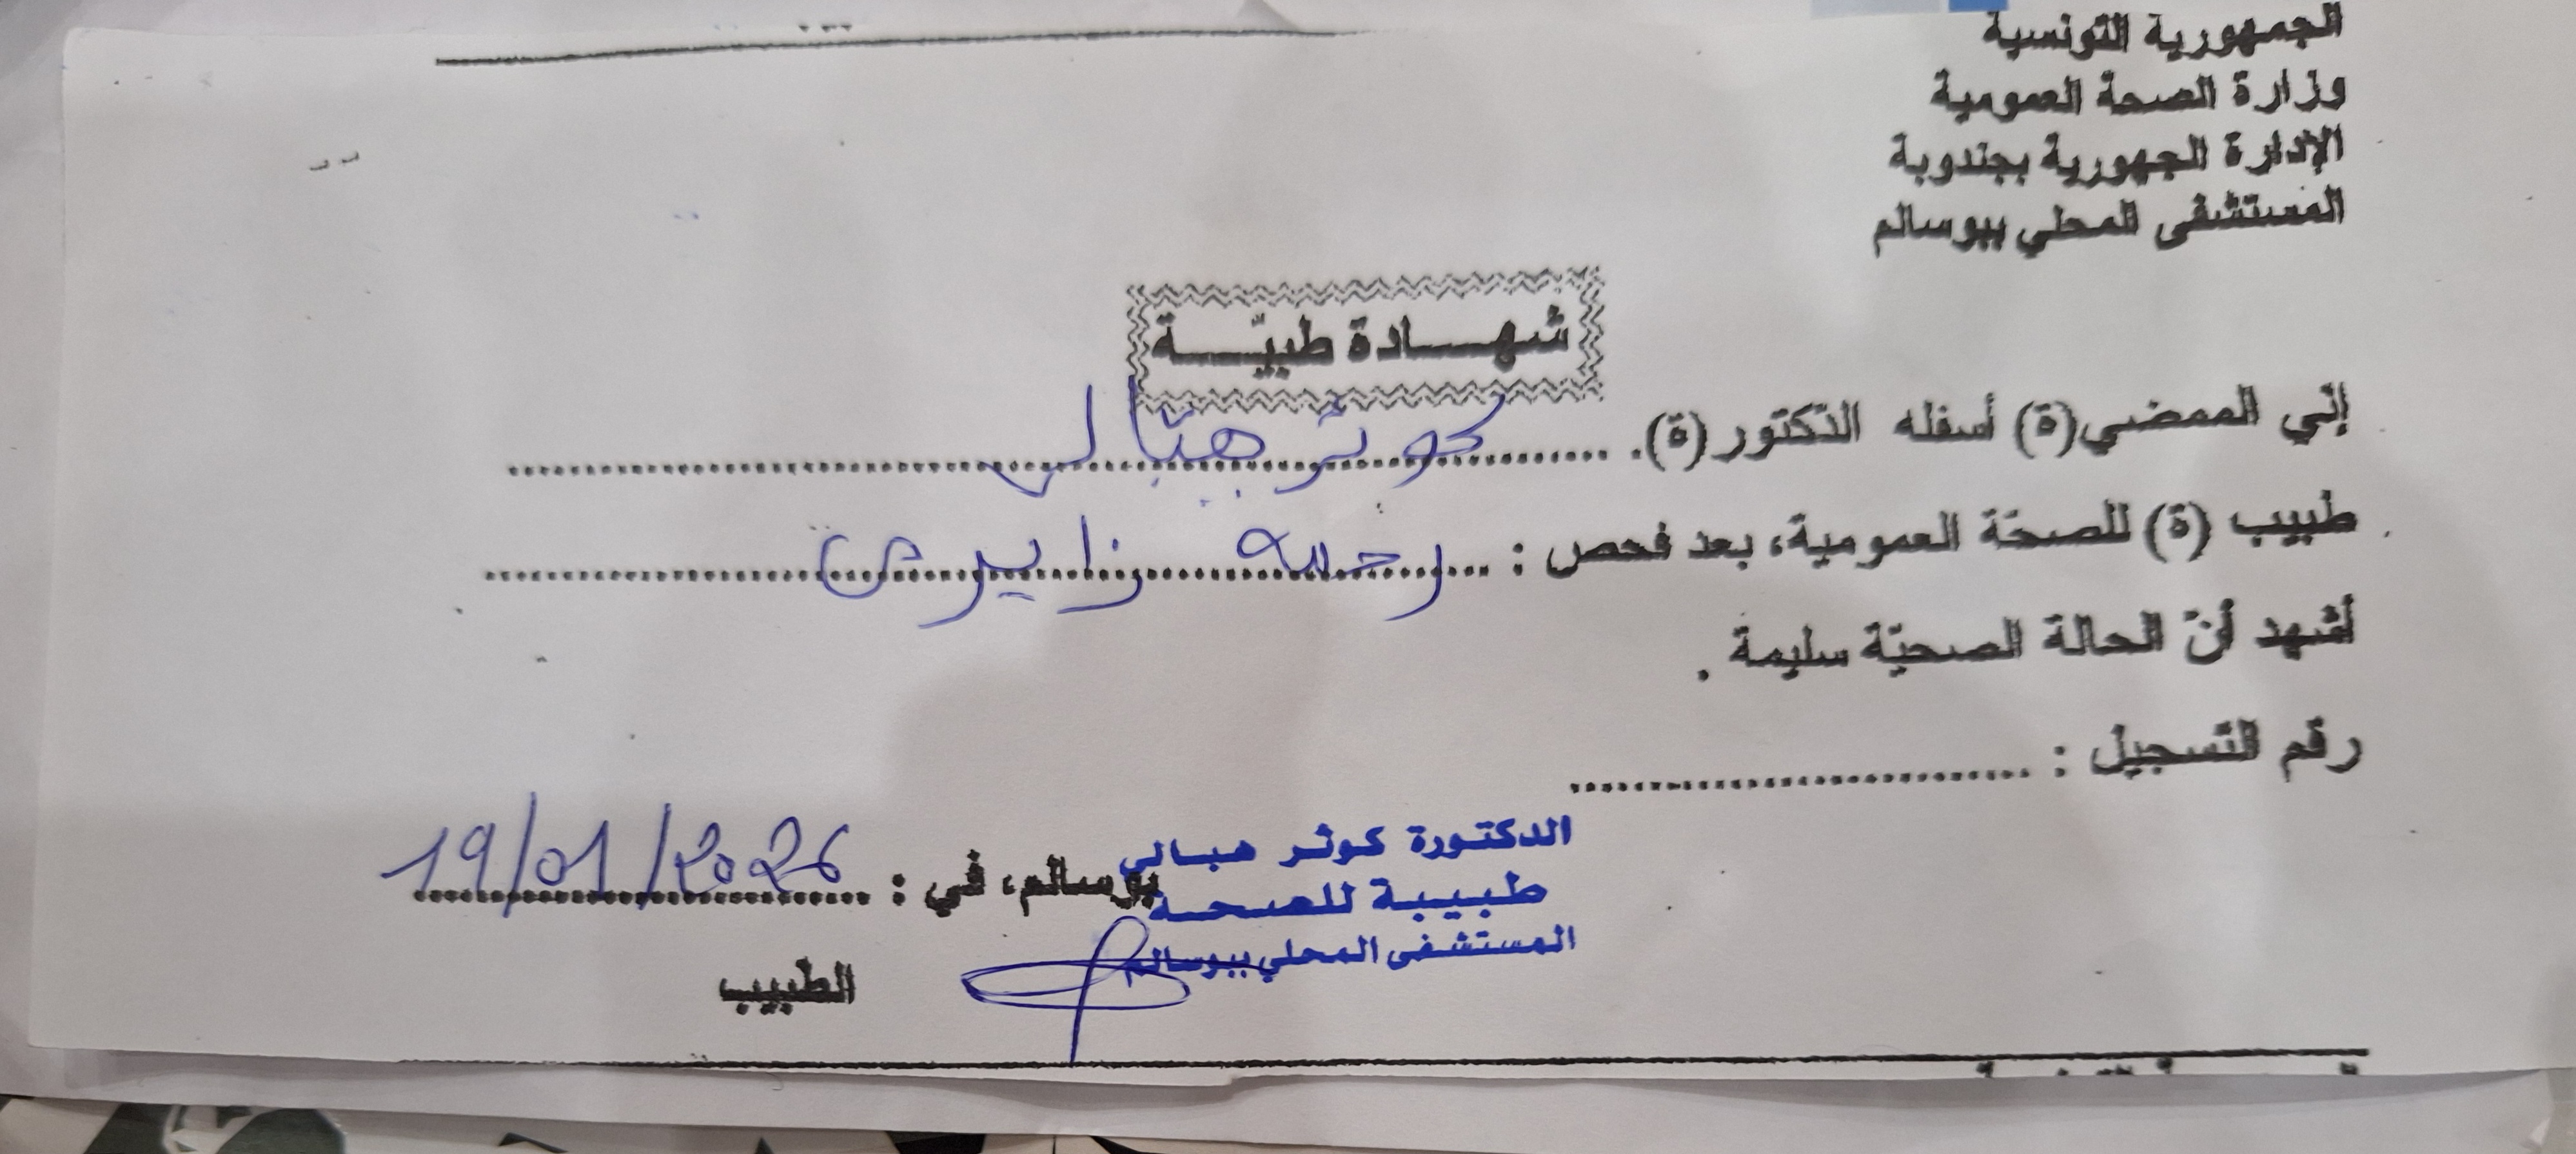 الجمهورية التونسية
وزارة الصحة العمومية
الإدارة الجهورية بجندوبة
المستشفى المحلي ببوسالم
شهـــادة طبيّـــة
إني الممضي(ة) أسفله الدكتور(ة). كوثر هبالي
طبيب (ة) للصحة العمومية، بعد فحص : زايري
أشهد أنّ الحالة الصحيّة سليمة .
رقم التسجيل :
الدكتورة كوثر هبالي
طبيبة للصحة
المستشفى المحلي ببوسالم
بوسالم، في : 19/01/2026
الطبيب